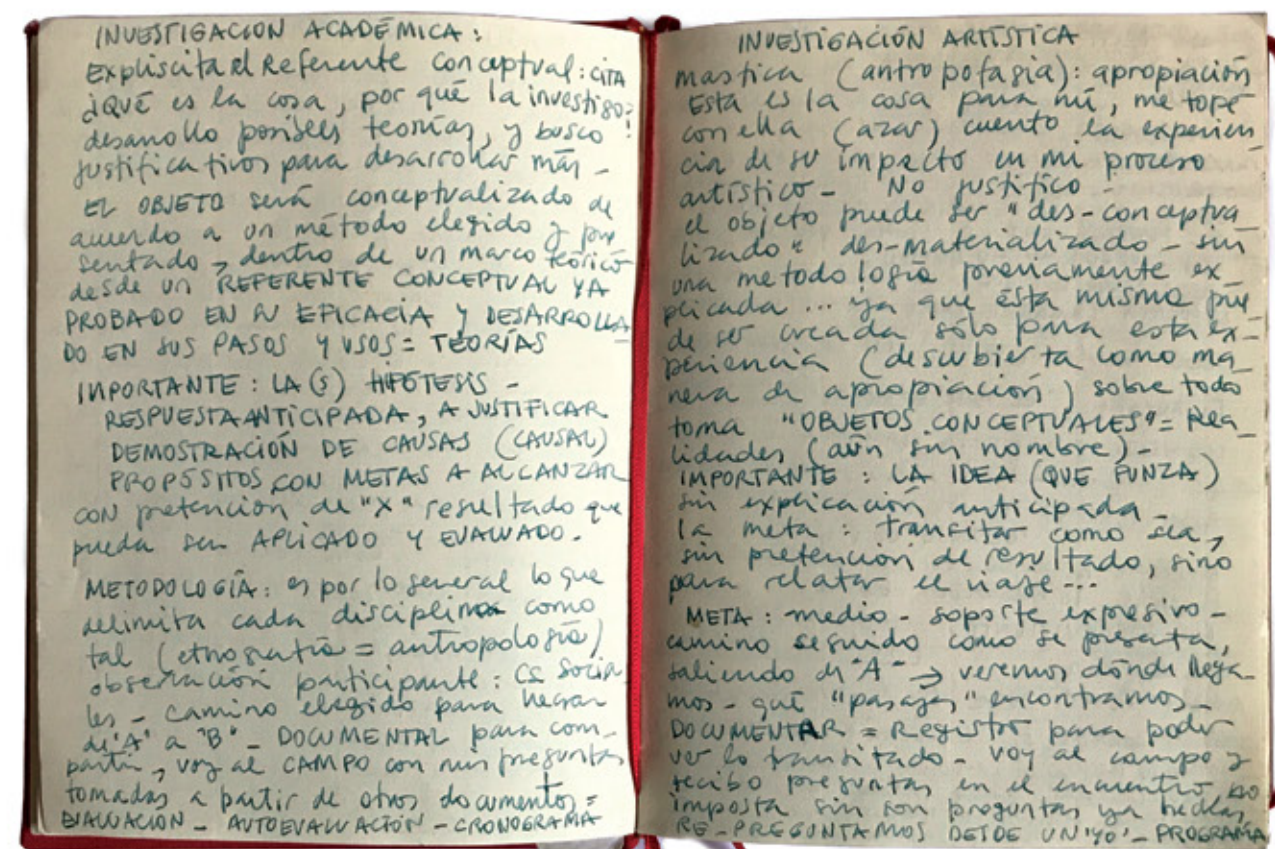 INVESTIGACION ACADÉMICA:
Expliscita el Referente conceptual: cita
¿QUÉ es la cosa, por qué la investigo?
desarrollo posibles teorías, y busco !
justificativos para desarrollar más -
EL OBJETO será conceptualizado de
acuerdo a un método elegido y pre
sentado, dentro de un marco teórico
desde un REFERENTE CONCEPTUAL YA
PROBADO EN SU EFICACIA Y DESARROLLA
DO EN SUS PASOS Y USOS = TEORÍAS
IMPORTANTE: LA(S) HIPÓTESIS -
RESPUESTA ANTICIPADA, A JUSTIFICAR
DEMOSTRACIÓN DE CAUSAS (CAUSAL)
PROPÓSITOS CON METAS A ALCANZAR
CON pretención de "X" resultado que
pueda ser APLICADO Y EVALUADO.
METODOLOGÍA: es por lo general lo que
delimita cada disciplina como
tal (etnografía = antropología)
observación participante: Cs Socia
les - camino elegido para llegar
de "A" a "B" - DOCUMENTAL para com_
partir, voy al CAMPO con mis preguntas
tomadas a partir de otros documentos =
EVALUACION - AUTOEVALUACIÓN - CRONOGRAMA
INVESTIGACIÓN ARTÍSTICA
mastica (antropofagia): apropiación
Esta es la cosa para mí, me topé
con ella (azar) cuento la experien
cia de su impacto en mi proceso
artístico - No justifico -
el objeto puede ser "des-conceptua
lizado" des-materializado - sin
una metodología previamente ex_
plicada ... ya que ésta misma pue
de ser creada sólo para esta ex_
periencia (descubierta como ma
nera de apropiación) sobre todo
toma "OBJETOS CONCEPTUALES" = Rea_
lidades (aún sin nombre) -
IMPORTANTE: LA IDEA (QUE PUNZA)
sin explicación anticipada -
la meta: transitar como sea,
sin pretención de resultado, sino
para relatar el viaje ...
META: medio - soporte expresivo -
camino seguido como se presenta,
saliendo de "A" → veremos dónde llega_
mos - qué "pasajes" encontramos -
DOCUMENTAR = Registro para poder
ver lo transitado - voy al campo y
recibo preguntas en el encuentro, no
imposta sin son preguntas ya hechas
RE-PREGUNTAMOS DESDE UN 'YO' - PROGRAMA